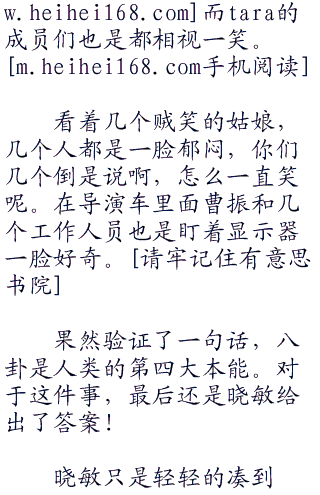 w.heihei168.com]而tara的
成员们也是都相视一笑。
[m.heihei168.com手机阅读]
看着几个贼笑的姑娘，
几个人都是一脸郁闷，你们
几个倒是说啊，怎么一直笑
呢。在导演车里面曹振和几
个工作人员也是盯着显示器
一脸好奇。[请牢记住有意思
书院]
果然验证了一句话，八
卦是人类的第四大本能。对
于这件事，最后还是晓敏给
出了答案！
晓敏只是轻轻的凑到